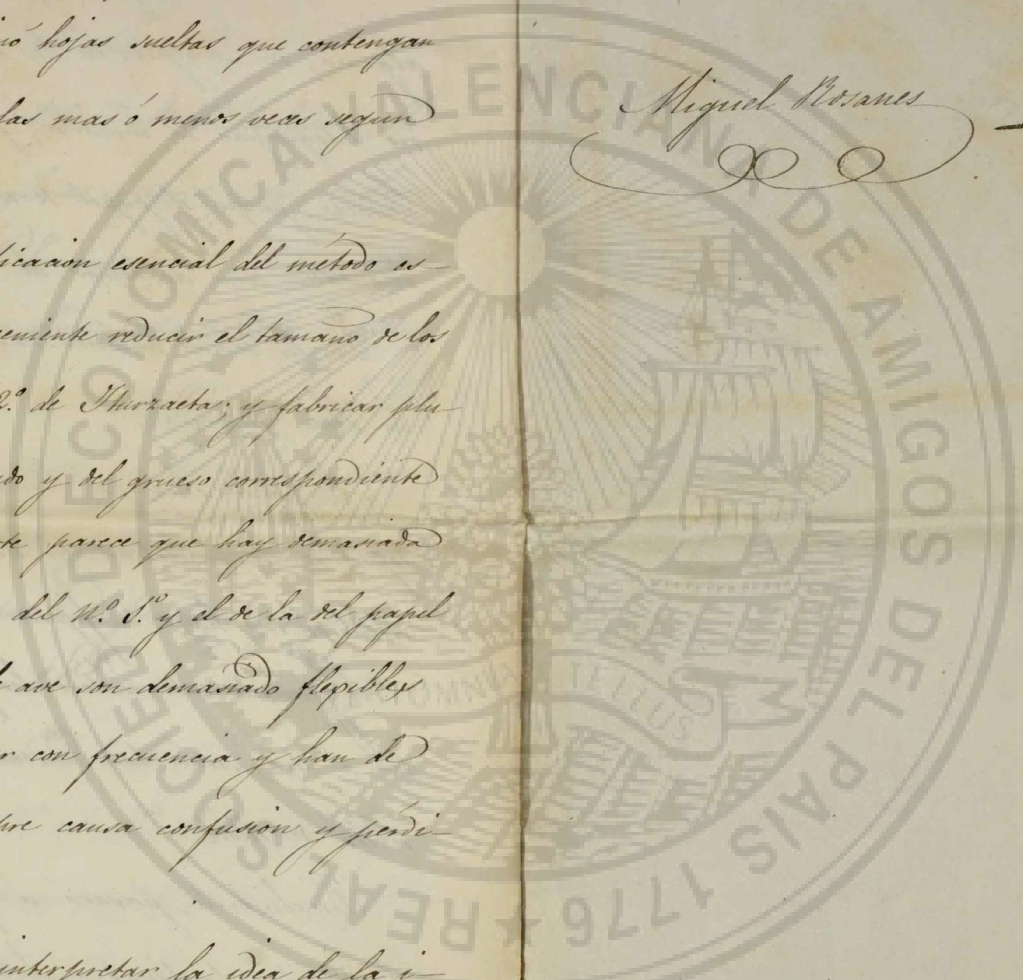 nó hojas sueltas que contengan
las mas ó menos veces segun
icacion esencial del método es-
veniente reducir el tamaño de los
2º. de Iturzaeta; y fabricar plu-
do y del grueso correspondiente
te parece que hay demasiada
del nº. 5º. y el de la del papel
e ave son demasiado flexibles
r con frecuencia y han de
pre causa confusion y perdi-
interpretar la idea de la i-
Miguel Rosanes
REAL SOCIEDAD ECONOMICA VALENCIANA DE AMIGOS DEL PAIS 1776
OMNIA TELLUS